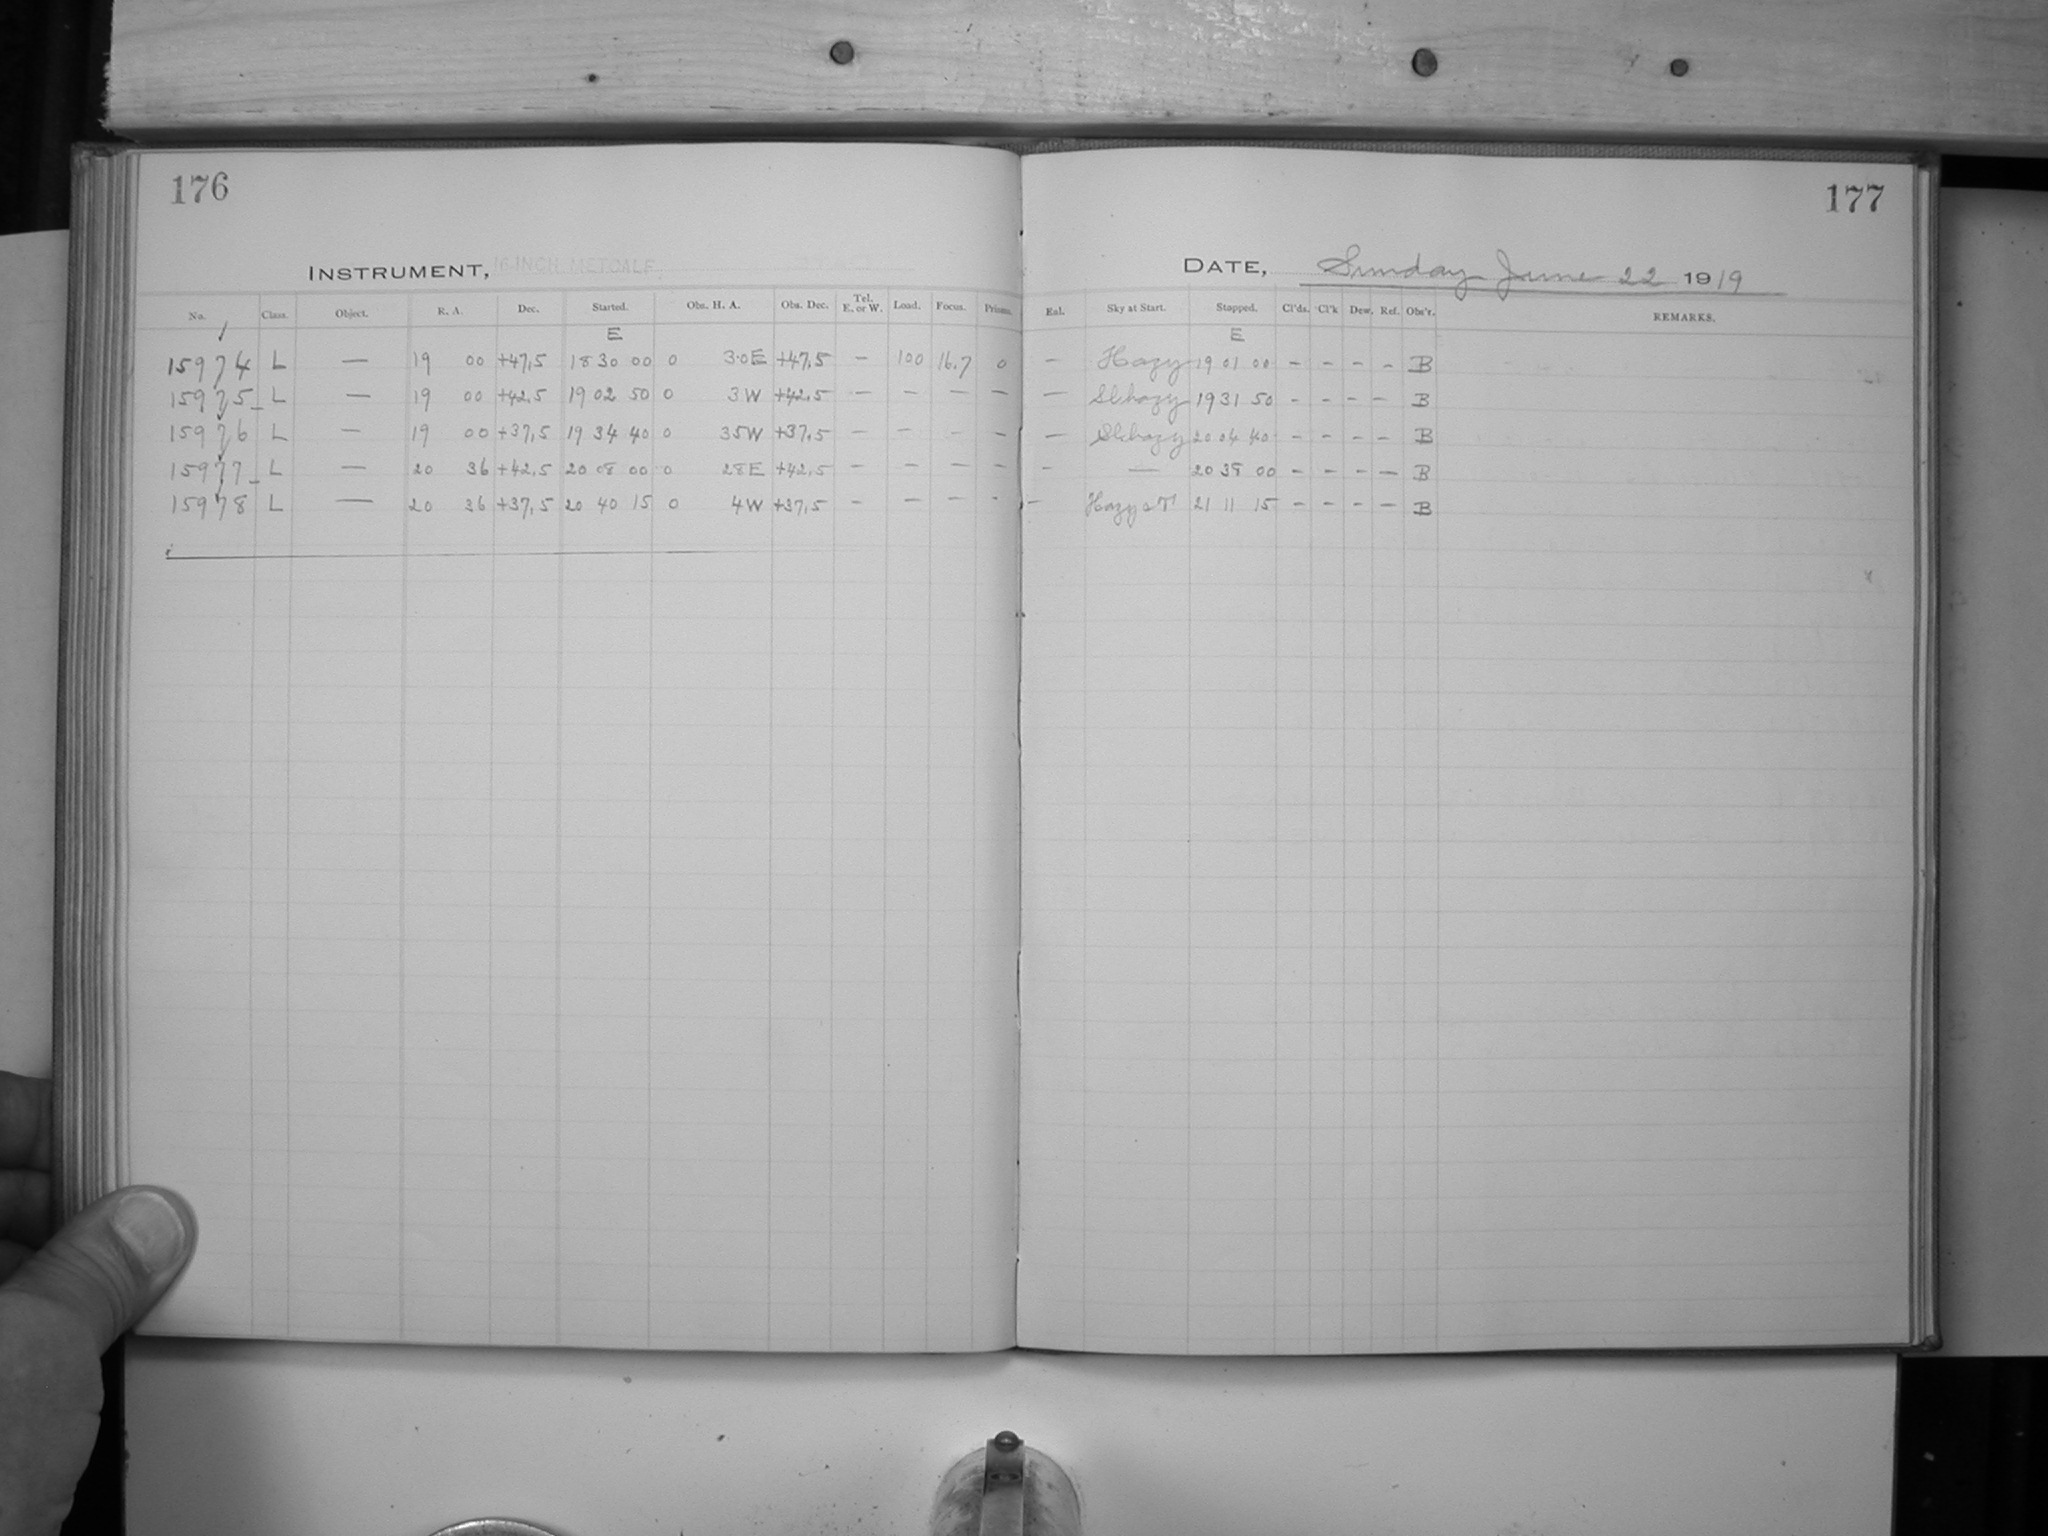 176
177
INSTRUMENT, 16-INCH METCALF.
DATE, Sunday June 22 1919
No. Class. Object. R. A. Dec. Started. Obs. H. A. Obs. Dec. Tel. E. or W. Load. Focus. Prisms. Eul. Sky at Start. Stopped. Cl'ds. Cl'k Dew. Ref. Obs'r. REMARKS.
E E
15974 L — 19 00 +47,5 18 30 00 0 30E +47,5 – 100 16.7 0 – Hazy 19 01 00 – – – – B
15975 L — 19 00 +42,5 19 02 50 0 3W +42,5 – – – – – Sl hazy 19 31 50 – – – – B
15976 L — 19 00 +37,5 19 34 40 0 35W +37,5 – – – – – Sl hazy 20 04 40 – – – – B
15977 L — 20 36 +42,5 20 08 00 0 28E +42,5 – – – – – — 20 38 00 – – – – B
15978 L — 20 36 +37,5 20 40 15 0 4W +37,5 – – – – – Hazy 21 11 15 – – – – B